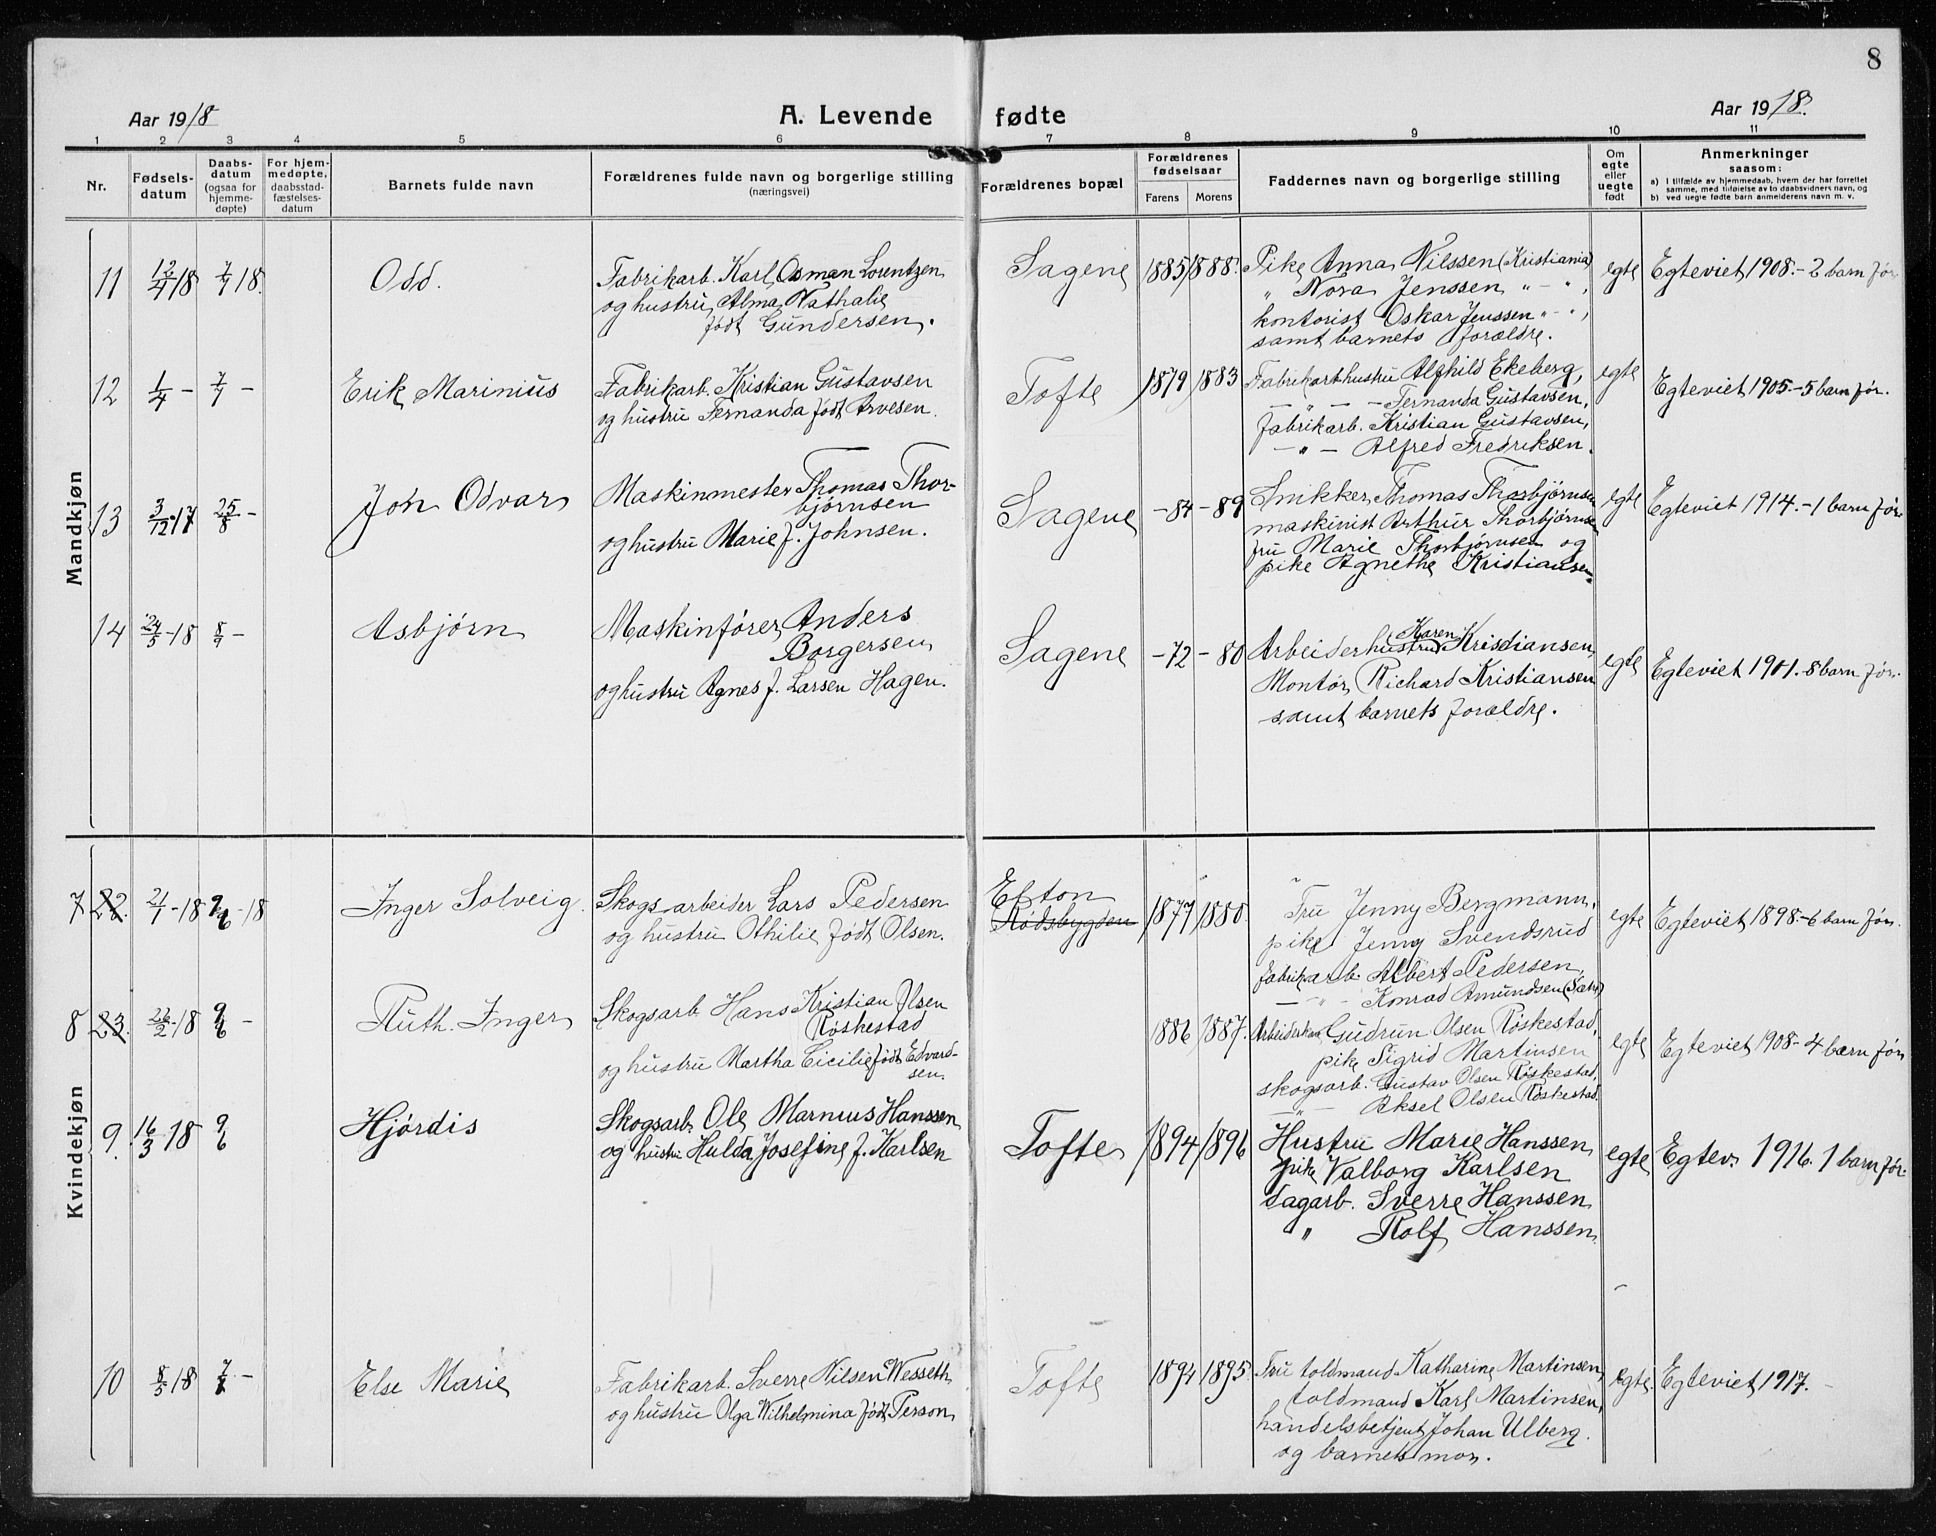 8
Aar 1918
A. Levende fødte
Aar 1918.
1 2 3 4 5 6 7 8 9 10 11
Nr.
Fødsels-
datum
Daabs-
datum
(ogsaa for
hjemme-
døpte)
For hjem-
medøpte,
daabsstad-
fæstelses-
datum
Barnets fulde navn
Forældrenes fulde navn og borgerlige stilling
(næringsvei)
Forældrenes bopæl
Forældrenes
fødselsaar
Farens
Morens
Faddernes navn og borgerlige stilling
Om
egte
eller
uegte
født
Anmerkninger
saasom:
a) I tilfælde av hjemmedaab, hvem der har forrettet
samme, med tilføielse av to daabsvidners navn, og
b) ved uegte fødte barn anmelderens navn m. v.
Mandkjøn
11 12/4 18 7/7 18. Odd.
Fabrikarb. Karl Osman Lorentzen
og hustru Alma Nathalie
født Gundersen.
Sagene 1885 1888.
Pike Anna Nilssen (Kristiania)
" Nora Jenssen " - ",
kontorist Oskar Jenssen " - ",
samt barnets forældre.
egte Egteviet 1908. - 2 barn før.
12 1/4 - 7/7 - Erik Marinius
Fabrikarb. Kristian Gustavsen
og hustru Fernanda født Arvesen.
Tofte 1879 1883
Fabrikarb.hustru Alfhild Ekeberg,
- " - - Fernanda Gustavsen,
fabrikarb. Kristian Gustavsen,
- " - Alfred Fredriksen.
egte Egteviet 1905. - 5 barn før.
13 3/12 17 25/8 - Jon Odvar
Maskinmester Thomas Thor-
bjørnsen
og hustru Marie f. Johnsen.
Sagene - 84 - 89
Snikker Thomas Thorbjørnsen
maskinist Arthur Thorbjørnsen
fru Marie Thorbjørnsen og
pike Agnethe Kristiansen.
egte Egteviet 1914. - 1 barn før.
14 24/5 - 18 8/9 - Asbjørn
Maskinfører Anders
Borgersen
og hustru Agnes f. Larsen Hagen.
Sagene - 72 - 80
Arbeiderhustru Karen Kristiansen,
Montør Richard Kristiansen
samt barnets forældre.
egte Egteviet 1901. - 8 barn før.
Kvindekjøn
7 22. 2/1 - 18 9/6 - 18 Inger Solveig.
Skogsarbeider Lars Pedersen
og hustru Othilie født Olsen.
Rødsbygden 1877 1880.
Fru Jenny Bergmann,
pike Jenny Svendsrud
fabrikarb. Albert Pedersen,
- " - Konrad Amundsen
egte Egteviet 1898. - 6 barn før.
8 23. 26/2 - 18 9/6 - Ruth. Inger
Skogsarb. Hans Kristian Olsen
Røskestad
og hustru Martha Cicilie født Edvard-
sen.
1886 1887.
Gudrun Olsen Røskestad,
pike Sigrid Martinsen
skogsarb. Gustav Olsen Røskestad,
- " - Aksel Olsen Røskestad.
egte Egteviet 1908 - 4 barn før
9. 16/3 18 9/6 Hjørdis
Skogsarb. Ole Marnius Hanssen
og hustru Hulda Josefine f. Karlsen
Tofte 1894 1896
Hustru Marie Hanssen
pike Valborg Karlsen
dagarb. Sverre Hanssen
" Rolf Hanssen.
egte Egtev. 1916. 1 barn før.
10 8/5 18 7/7 - Else Marie
Fabrikarb. Sverre Nilsen Wesseth
og hustru Olga Wilhelmina født Person
Tofte 1894 1895.
Fru toldmand Katharine Martinsen,
toldmand Karl Martinsen,
handelsbetjent Johan Ulberg.
og barnets mor.
egte. Egteviet 1917. -